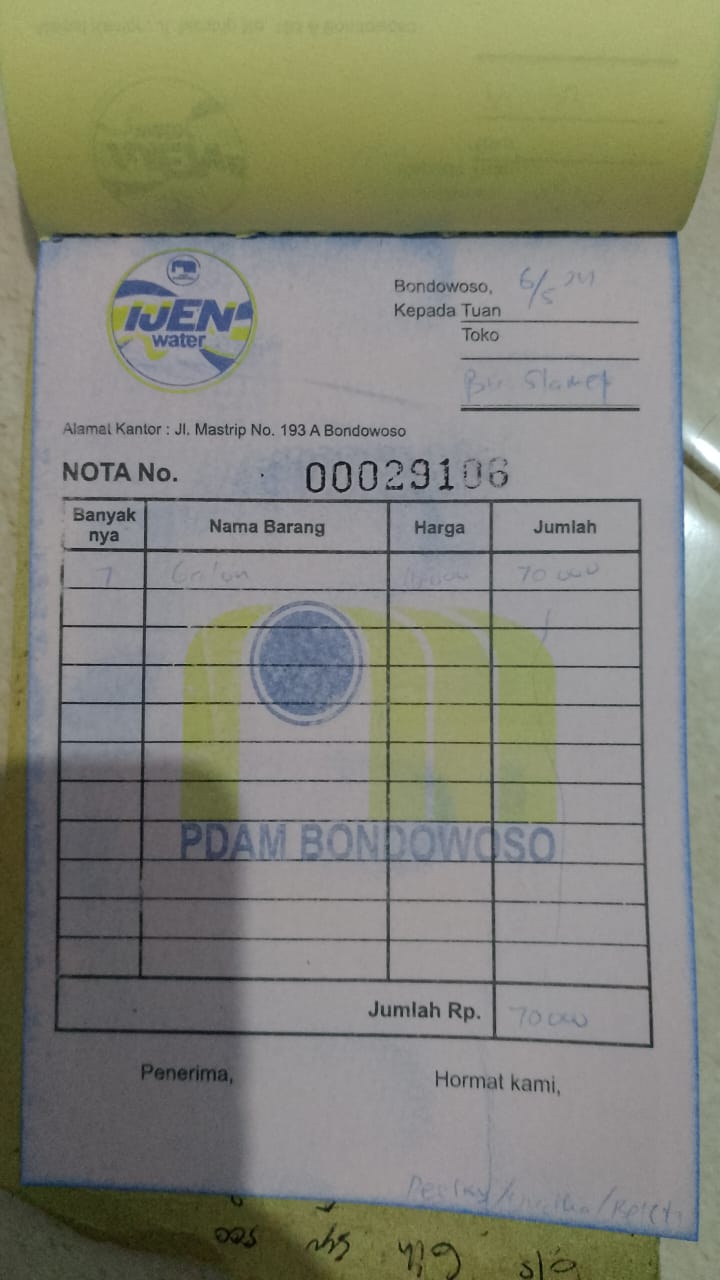 IJEN
water
Bondowoso, 6/5 24
Kepada Tuan
Toko
Bu Slamet
Alamat Kantor : Jl. Mastrip No. 193 A Bondowoso
NOTA No. 00029106
Banyak nya Nama Barang Harga Jumlah
7 Galon 10000 70 000
PDAM BONDOWOSO
Jumlah Rp. 70 000
Penerima, Hormat kami,